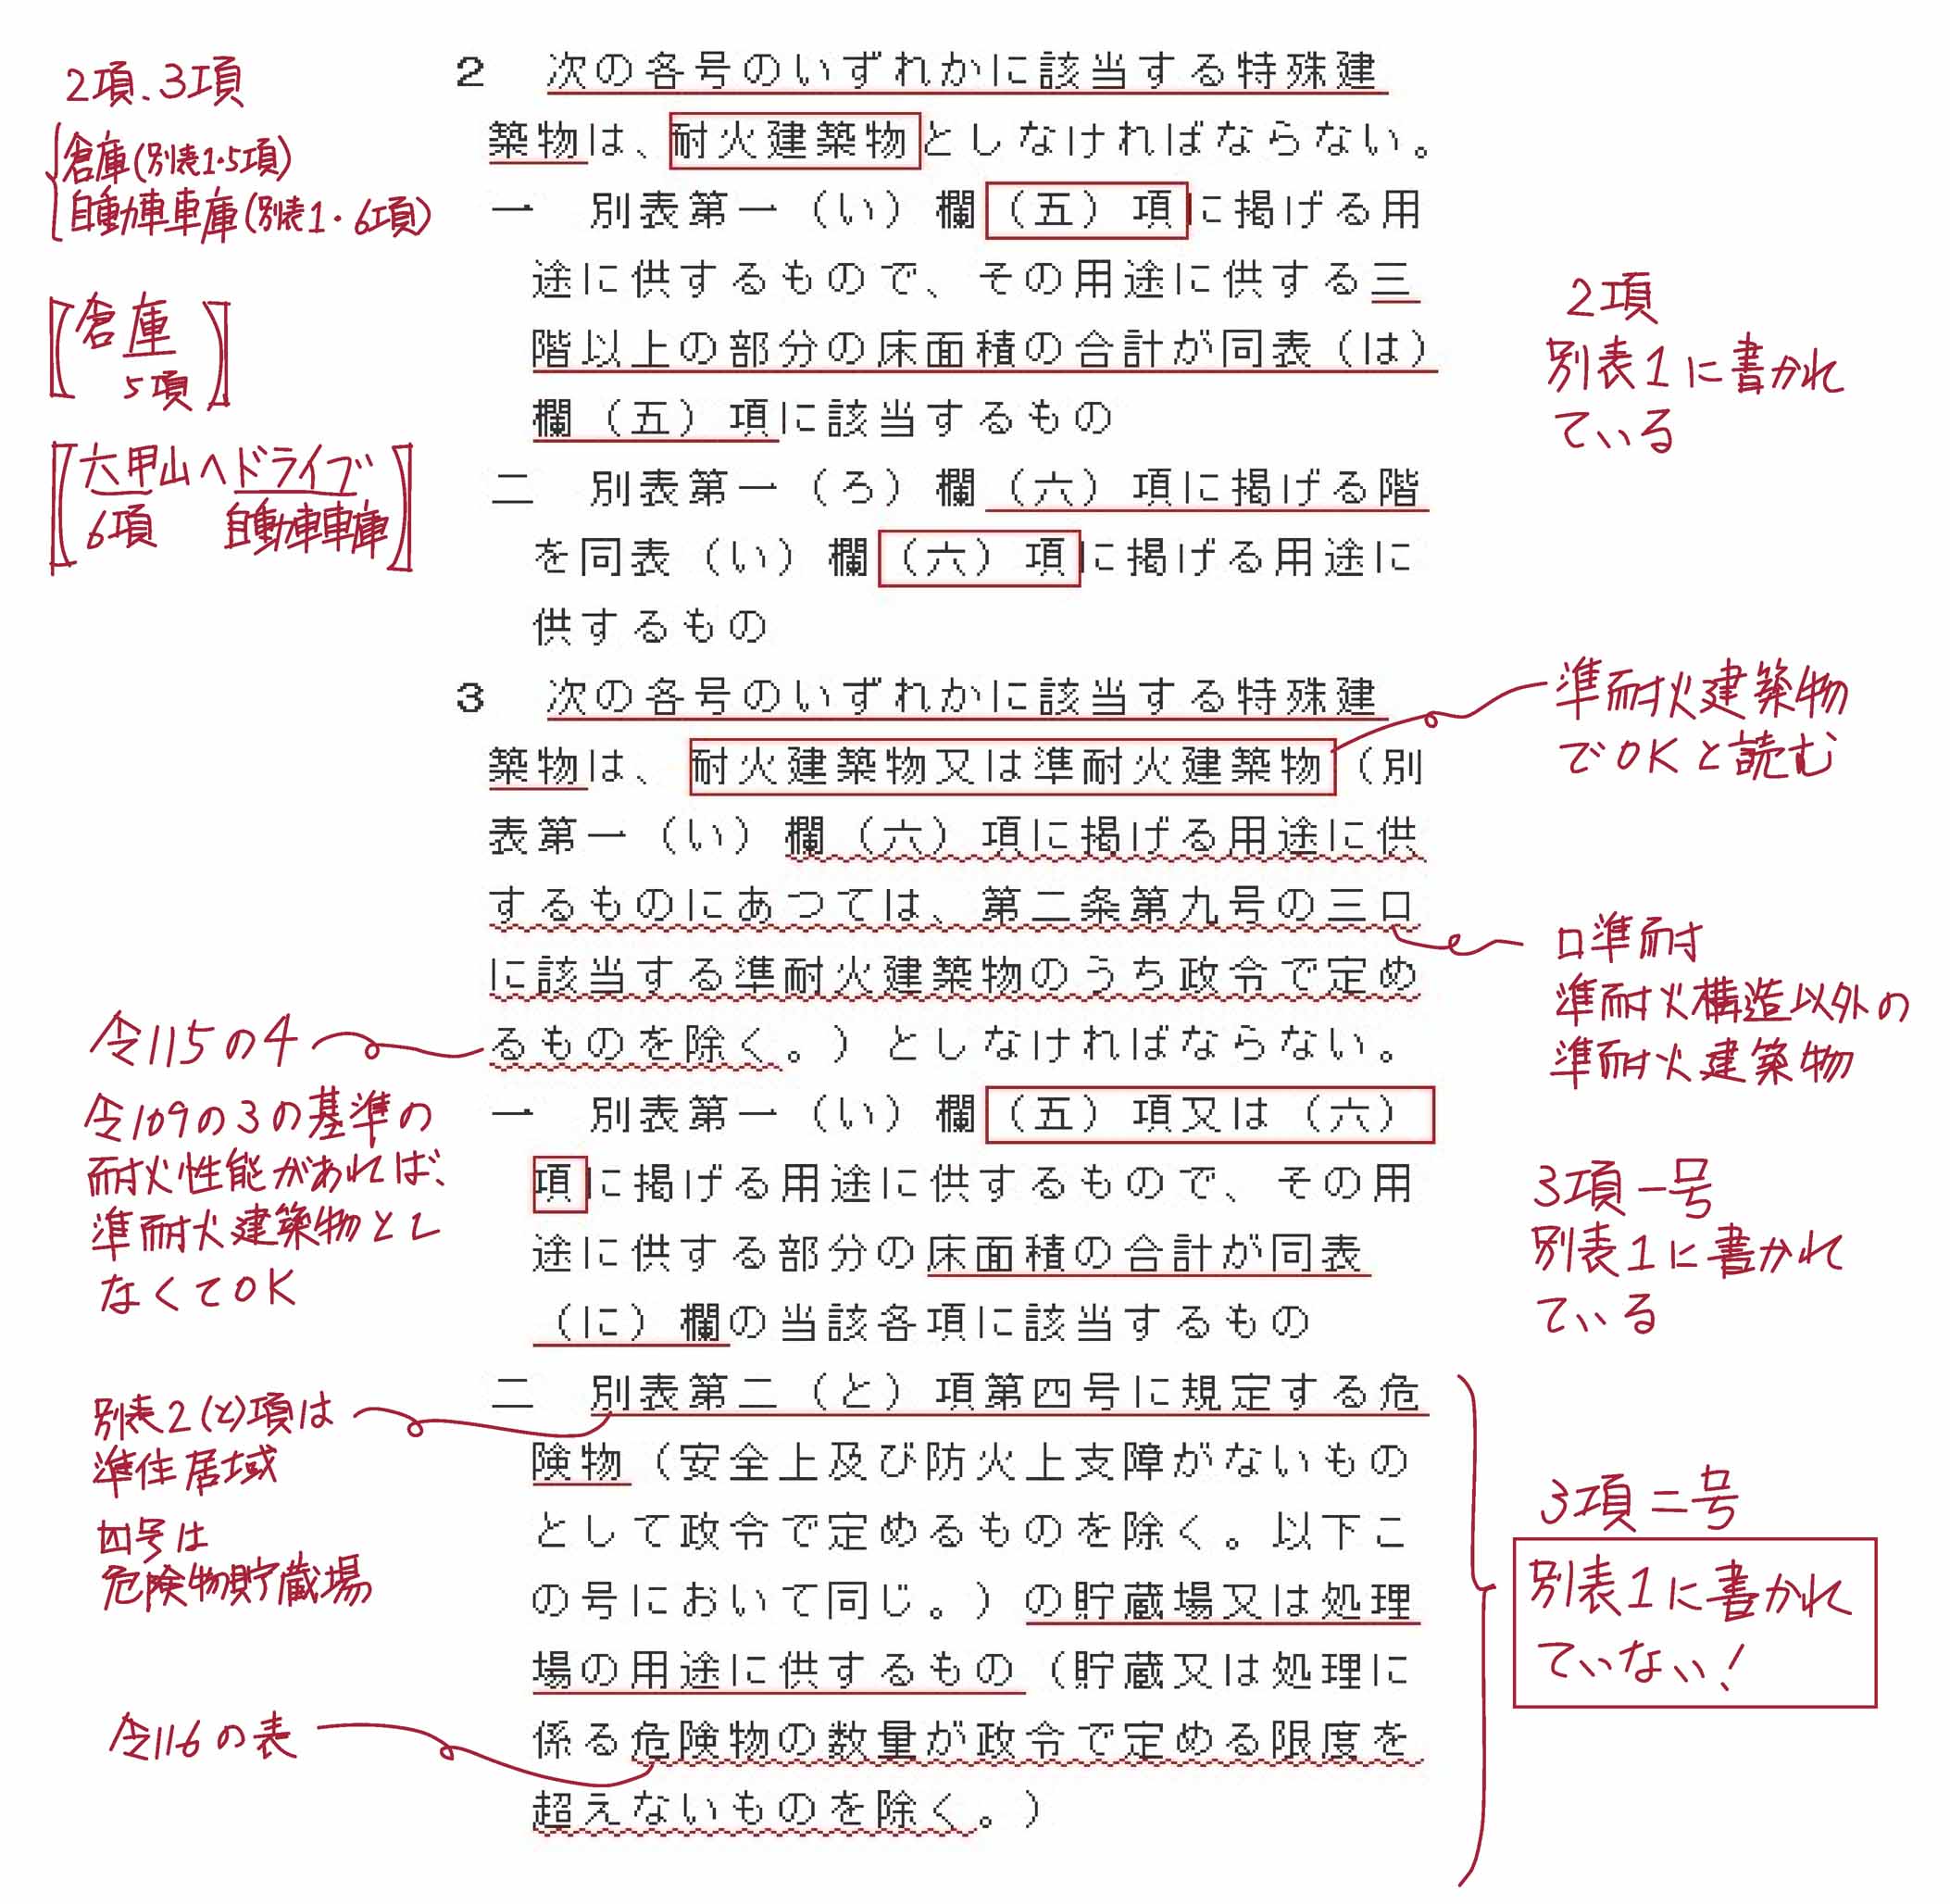 2項、3項
倉庫(別表1・5項)
自動車車庫(別表1・6項)
倉庫
5項
六甲山へドライブ
6項 自動車車庫
2 次の各号のいずれかに該当する特殊建
築物は、耐火建築物としなければならない。
一 別表第一（い）欄（五）項に掲げる用
途に供するもので、その用途に供する三
階以上の部分の床面積の合計が同表（は）
欄（五）項に該当するもの
二 別表第一（ろ）欄（六）項に掲げる階
を同表（い）欄（六）項に掲げる用途に
供するもの
2項
別表1に書かれ
ている
3 次の各号のいずれかに該当する特殊建
築物は、耐火建築物又は準耐火建築物（別
表第一（い）欄（六）項に掲げる用途に供
するものにあつては、第二条第九号の三ロ
に該当する準耐火建築物のうち政令で定め
るものを除く。）としなければならない。
一 別表第一（い）欄（五）項又は（六）
項に掲げる用途に供するもので、その用
途に供する部分の床面積の合計が同表
（に）欄の当該各項に該当するもの
二 別表第二（と）項第四号に規定する危
険物（安全上及び防火上支障がないもの
として政令で定めるものを除く。以下こ
の号において同じ。）の貯蔵場又は処理
場の用途に供するもの（貯蔵又は処理に
係る危険物の数量が政令で定める限度を
超えないものを除く。）
準耐火建築物
でOKと読む
ロ準耐
準耐火構造以外の
準耐火建築物
令115の4
令109の3の基準の
耐火性能があれば、
準耐火建築物とし
なくてOK
3項一号
別表1に書かれ
ている
別表2(と)項は
準住居域
四号は
危険物貯蔵場
令116の表
3項二号
別表1に書かれ
ていない!